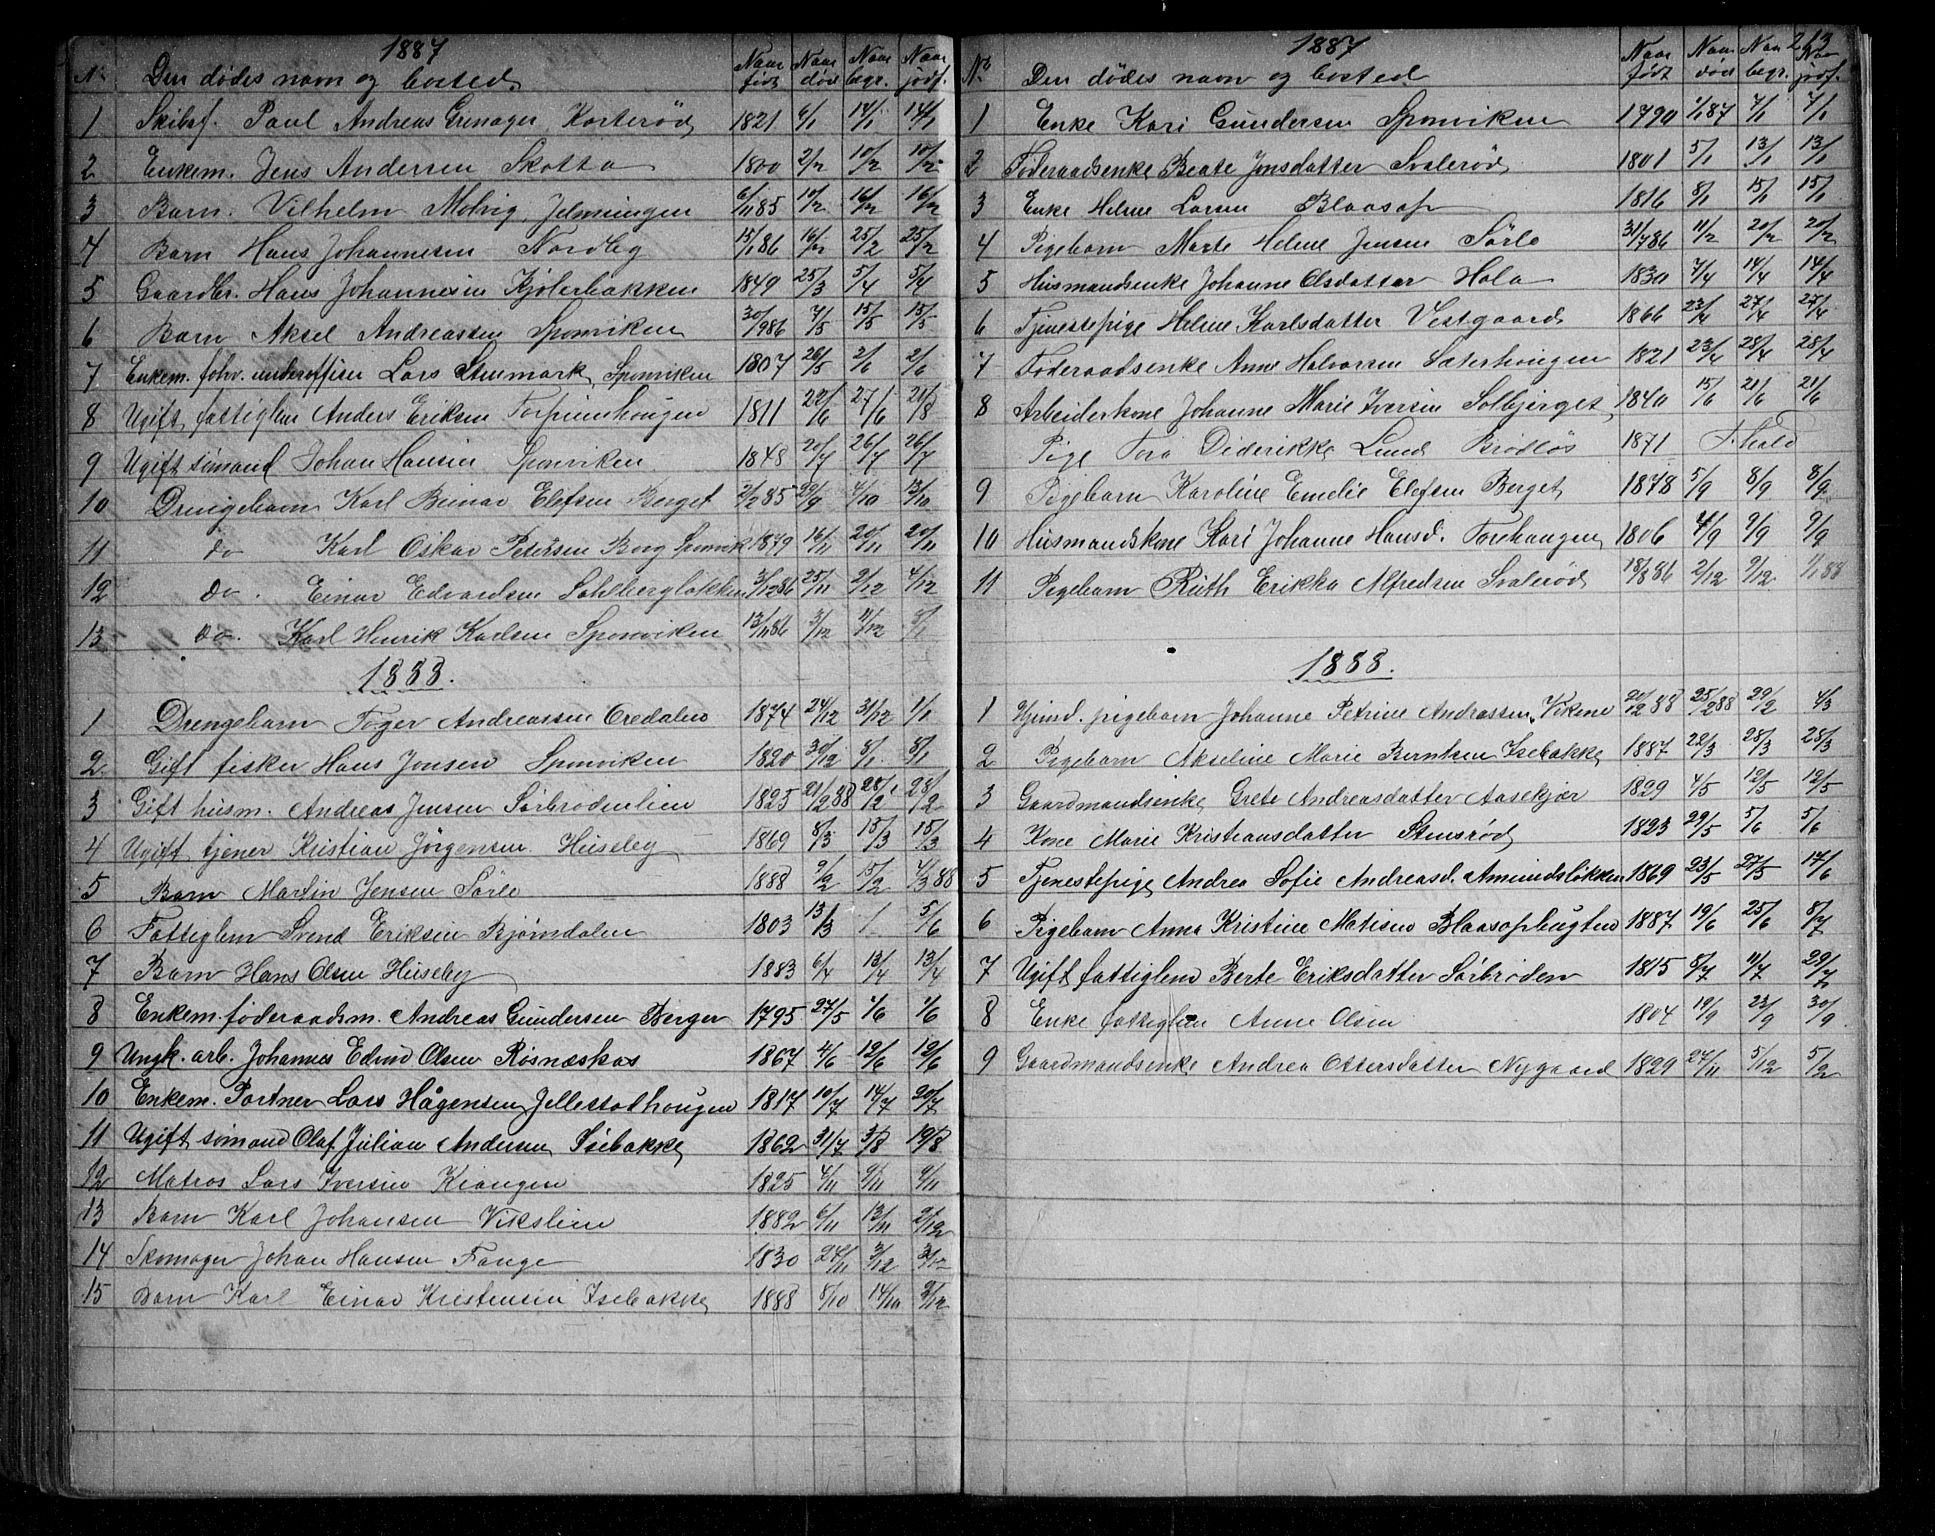 1887
No Den dødes navn og bosted. Naar født Naar død Naar begr. Naar jordf.
1 Skibsf. Paul Andreas Grenager, Korterød 1821 6/1 14/1 14/1
2 Enkem. Jens Andersen Skotta 1800 2/2 10/2 10/2
3 Barn. Vilhelm Molvig, Jelmungen 6/11 85 10/2 16/2 16/2
4 Barn Hans Johannesen Nordby 15/1 86 16/2 25/2 25/2
5 Gaardbr. Hans Johannesen Kjølerbakken 1849 25/3 5/4 5/4
6 Barn Aksel Andreassen Sponviken 30/9 86 7/5 15/5 15/5
7 Enkem. forhv. underoffiser Lars Stenmark, Sponviken 1807 26/5 2/6 2/6
8 Ugift fattiglem Anders Eriksen Torpumhougen 1811 22/6 27/6 21/8
9 Ugift sømand Johan Hansen Sponviken 1848 20/7 26/7 26/7
10 Drengebarn Karl Bernar Elefsen Berget 2/2 85 29/9 4/10 13/10
11 do Karl Oskar Petersen Borg Sponvik 1879 16/11 20/11 20/11
12 do. Einar Edvardsen Sahlbergløkken 3/12 86 25/11 2/12 4/12
13 do. Karl Henrik Karlsen Sponviken 13/11 86 3/12 11/12 8/1
1888.
1 Drengebarn Toger Andreassen Oredalen 1874 24/12 31/12 1/1
2 Gift fisker Hans Jonsen Sponviken 1820 30/12 8/1 8/1
3 Gift husm. Andreas Jensen Sørbrødenlien 1825 21/2 88 28/2 28/2
4 Ugift tjener Kristian Jørgensen Huseby 1869 8/3 15/3 15/3
5 Barn Martin Jensen Sørle 1888 9/2 15/2 4/3 88
6 Fattiglem Svend Eriksen Bjørndalen 1803 13/3 / 5/6
7 Barn Hans Olsen Huseby 1883 6/4 13/4 13/4
8 Enkem. føderaadsm. Andreas Gundersen Berger 1795 27/5 1/6 1/6
9 Ungk. arb. Johannes Edvin Olsen Røsnæskas 1867 4/6 12/6 12/6
10 Enkem. Portner Lars Hågensen Jellestadhougen 1817 10/7 14/7 20/7
11 Ugift sømand Olaf Julian Andersen Isebakke 1862 31/7 3/8 19/8
12 Matros Lars Iversen Krangen 1825 4/11 9/11 9/11
13 Barn Karl Johansen Vikslien 1882 6/11 13/11 2/12
14 Skomager Johan Hansen Fange 1830 24/11 3/12 3/12
15 Barn Karl Einar Kristensen Isebakke 1888 8/10 14/10 2/12
1887 213
No Den dødes navn og bosted Naar født Naar død Naar begr. Naar jordf.
1 Enke Kari Gundersen Sponviken 1790 1/1 87 7/1 7/1
2 Føderaadsenke Beate Jonsdatter Svalerød 1801 5/1 13/1 13/1
3 Enke Helene Larsen Blaasop 1816 8/1 15/1 15/1
4 Pigebarn Marte Helene Jensen Sørle 31/7 86 11/2 20/2 20/2
5 Husmandsenke Johanne Olsdatter Hola 1830 7/4 14/4 14/4
6 Tjenestepige Helene Karlsdatter Vestgaard 1866 23/4 27/4 27/4
7 Føderaadsenke Anne Halvorsen Sæterhougen 1821 23/4 28/4 28/4
8 Arbeiderkone Johanne Marie Iversen Solbjerget 1840 15/6 21/6 21/6
Pige Tora Diderikke Lund Brødløs 1871 F.hald
9 Pigebarn Karoline Emelie Elefsen Berget 1878 5/9 8/9 8/9
10 Husmandskone Kari Johanne Hansd. Torehaugen 1806 4/9 9/9 9/9
11 Pigebarn Ruth Erikka Alfredsen Svalerød 18/8 86 2/12 9/12 1/1 88
1888.
1 Hjemd. pigebarn Johanne Petrine Andreassen, Vikene 20/2 88 25/2 88 29/2 4/3
2 Pigebarn Akseline Marie Berntsen Isebakke 1887 22/3 28/3 28/3
3 Gaardmandsenke Grete Andreasdatter Aasekjær 1829 4/5 12/5 12/5
4 Kone Marie Kristiansdatter Stensrød 1823 29/5 5/6 5/6
5 Tjenestepige Andrea Sofie Andreasd. Amundsløkken 1869 23/5 27/5 17/6
6 Pigebarn Anna Kristine Matisen Blaasopbugten 1887 19/6 25/6 8/7
7 Ugift fattiglem Berte Eriksdatter Sørbrøden 1815 8/7 11/7 29/7
8 Enke fattiglem Anne Olsen 1804 19/9 23/9 30/9
9 Gaardmandsenke Andrea Ottersdatter Nygaard 1829 27/11 5/12 5/12